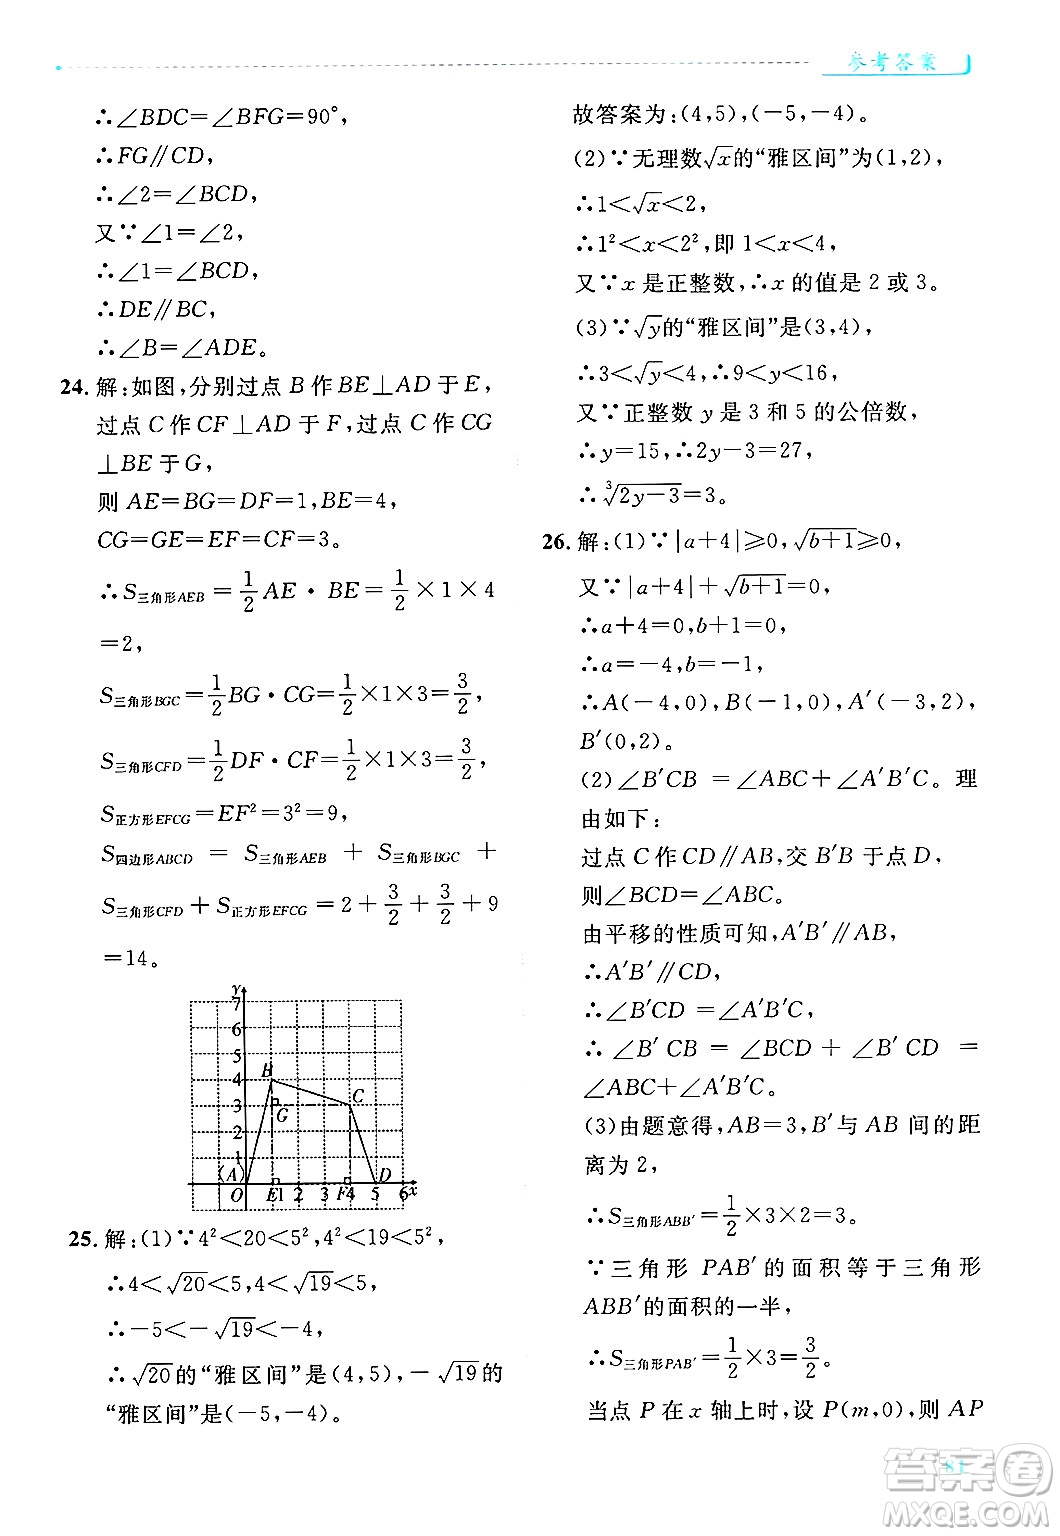 参考答案
∴∠BDC=∠BFG=90°,
∴FG∥CD,
∴∠2=∠BCD,
又∵∠1=∠2,
∴∠1=∠BCD,
∴DE∥BC,
∴∠B=∠ADE。
24. 解:如图,分别过点 B 作 BE⊥AD 于 E,
过点 C 作 CF⊥AD 于 F,过点 C 作 CG
⊥BE 于 G,
则 AE=BG=DF=1,BE=4,
CG=GE=EF=CF=3。
∴S三角形AEB=1/2 AE·BE=1/2×1×4
=2,
S三角形BGC=1/2 BG·CG=1/2×1×3=3/2,
S三角形CFD=1/2 DF·CF=1/2×1×3=3/2,
S正方形EFCG=EF²=3²=9,
S四边形ABCD = S三角形AEB + S三角形BGC +
S三角形CFD+S正方形EFCG=2+3/2+3/2+9
=14。
y
7
6
5
B
4
C
3
G
2
1
(A)
D
O E1 2 3 F4 5 6 x
25. 解:(1)∵4²<20<5²,4²<19<5²,
∴4<√20<5,4<√19<5,
∴-5<-√19<-4,
∴√20的“雅区间”是(4,5),-√19的
“雅区间”是(-5,-4)。
故答案为:(4,5),(-5,-4)。
(2)∵无理数√x的“雅区间”为(1,2),
∴1<√x<2,
∴1²<x<2²,即 1<x<4,
又∵x 是正整数,∴x 的值是 2 或 3。
(3)∵√y的“雅区间”是(3,4),
∴3<√y<4,∴9<y<16,
又∵正整数 y 是 3 和 5 的公倍数,
∴y=15,∴2y-3=27,
∴∛(2y-3)=3。
26. 解:(1)∵|a+4|≥0,√(b+1)≥0,
又∵|a+4|+√(b+1)=0,
∴a+4=0,b+1=0,
∴a=-4,b=-1,
∴A(-4,0),B(-1,0),A′(-3,2),
B′(0,2)。
(2)∠B′CB =∠ABC+∠A′B′C。理
由如下:
过点 C 作 CD∥AB,交 B′B 于点 D,
则∠BCD=∠ABC。
由平移的性质可知,A′B′∥AB,
∴A′B′∥CD,
∴∠B′CD =∠A′B′C,
∴∠B′CB =∠BCD+∠B′CD =
∠ABC+∠A′B′C。
(3)由题意得,AB=3,B′与 AB 间的距
离为 2,
∴S三角形ABB′=1/2×3×2=3。
∵三角形 PAB′的面积等于三角形
ABB′的面积的一半,
∴S三角形PAB′=1/2×3=3/2。
当点 P 在 x 轴上时,设 P(m,0),则 AP
81
答案圈
MXQE.COM